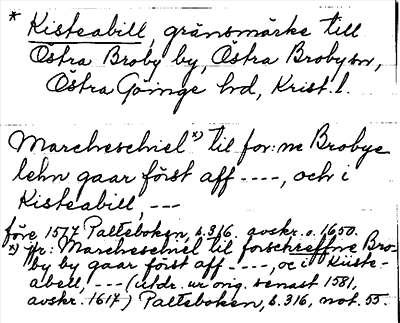 * Kisteabill, gränsmärke till
Östra Broby by, Östra Broby sn,
Östra Göinge hd, Krist. l.
Marcheschiel *) til for:ne Brobye
lehn gaar först aff ----, och i
Kisteabill, ---
före 1577 Palteboken, s. 316. avskr. o. 1650.
*) jfr: Marcheschiel til forschreffne Bro-
by by gaar först aff ----, oc i Kiiste-
abell, --- (utdr. ur orig. senast 1581,
avskr. 1617) Palteboken, s. 316, not. 55.